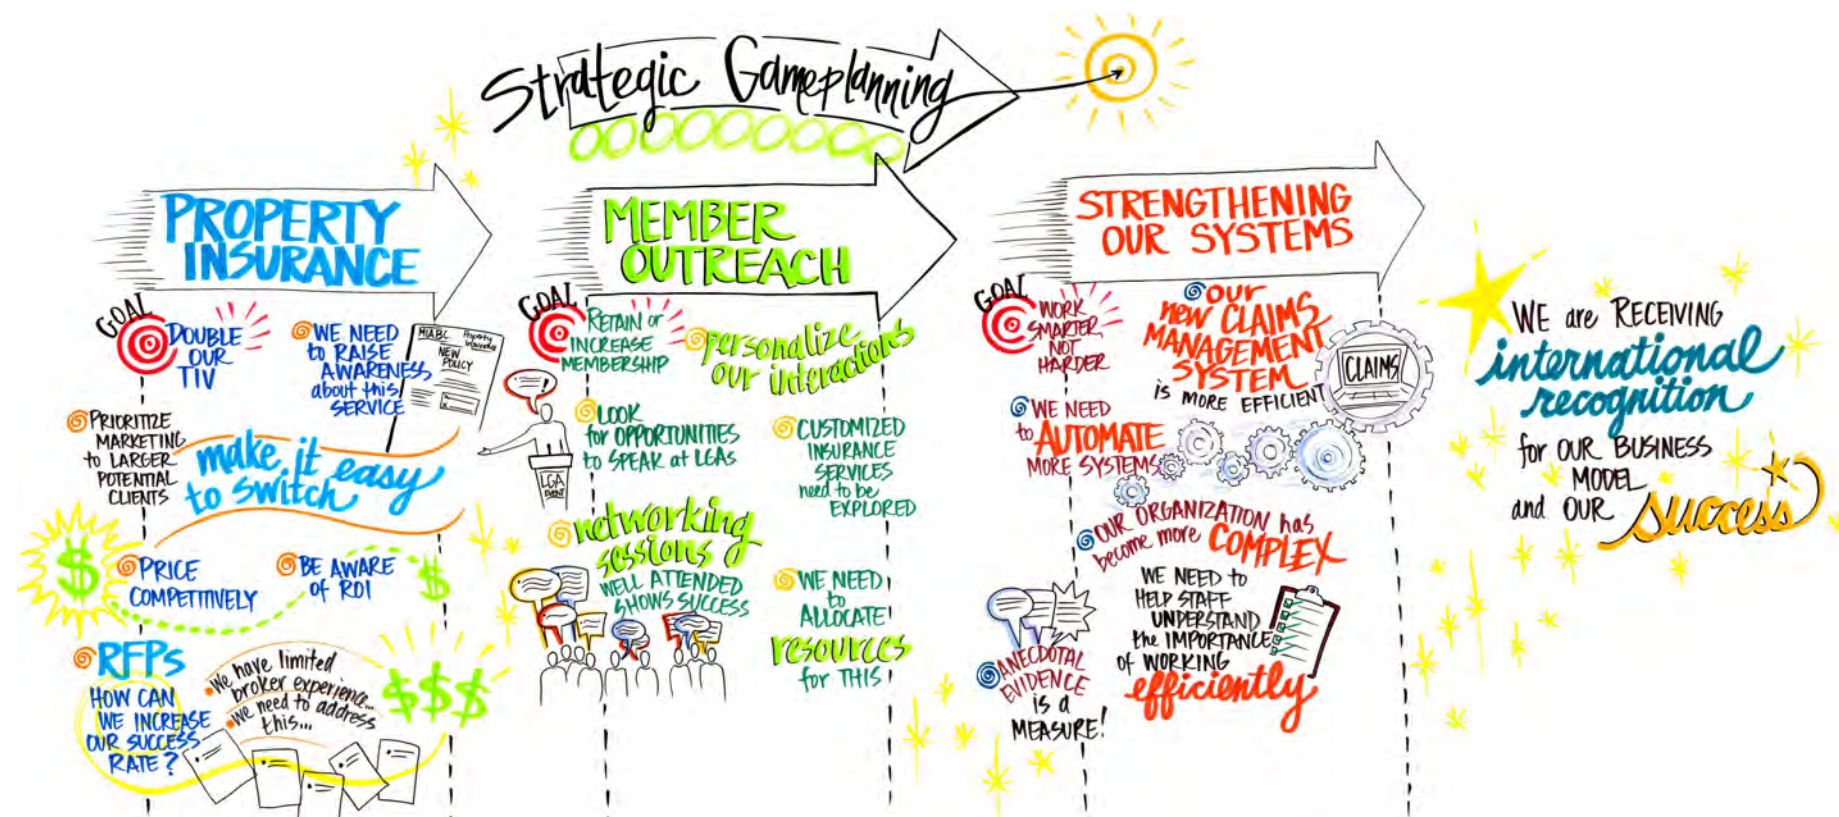 Strategic Gameplanning
PROPERTY
INSURANCE
GOAL
DOUBLE
OUR
TIV
WE NEED
to RAISE
AWARENESS
about this
SERVICE
MIABC Property
Insurance
NEW
POLICY
PRIORITIZE
MARKETING
to LARGER
POTENTIAL
CLIENTS
make it easy
to switch
$
PRICE
COMPETITIVELY
BE AWARE
of ROI
$
RFPs
HOW CAN
WE INCREASE
OUR SUCCESS
RATE?
We have limited
broker experience...
we need to address
this...
$$$
MEMBER
OUTREACH
GOAL
RETAIN or
INCREASE
MEMBERSHIP
personalize
our interactions
!
LOOK
for OPPORTUNITIES
to SPEAK at LGAs
LGA
EVENT
CUSTOMIZED
INSURANCE
SERVICES
need to be
EXPLORED
networking
sessions
WELL ATTENDED
SHOWS SUCCESS
WE NEED
to
ALLOCATE
resources
for THIS
STRENGTHENING
OUR SYSTEMS
GOAL
WORK
SMARTER,
NOT
HARDER
OUR
new CLAIMS
MANAGEMENT
SYSTEM
is MORE EFFICIENT
CLAIMS
WE NEED
to AUTOMATE
MORE SYSTEMS
OUR ORGANIZATION has
become more COMPLEX
WE NEED to
HELP STAFF
UNDERSTAND
the IMPORTANCE
of WORKING
efficiently
ANECDOTAL
EVIDENCE
is a
MEASURE!
WE are RECEIVING
international
recognition
for OUR BUSINESS
MODEL
and OUR success